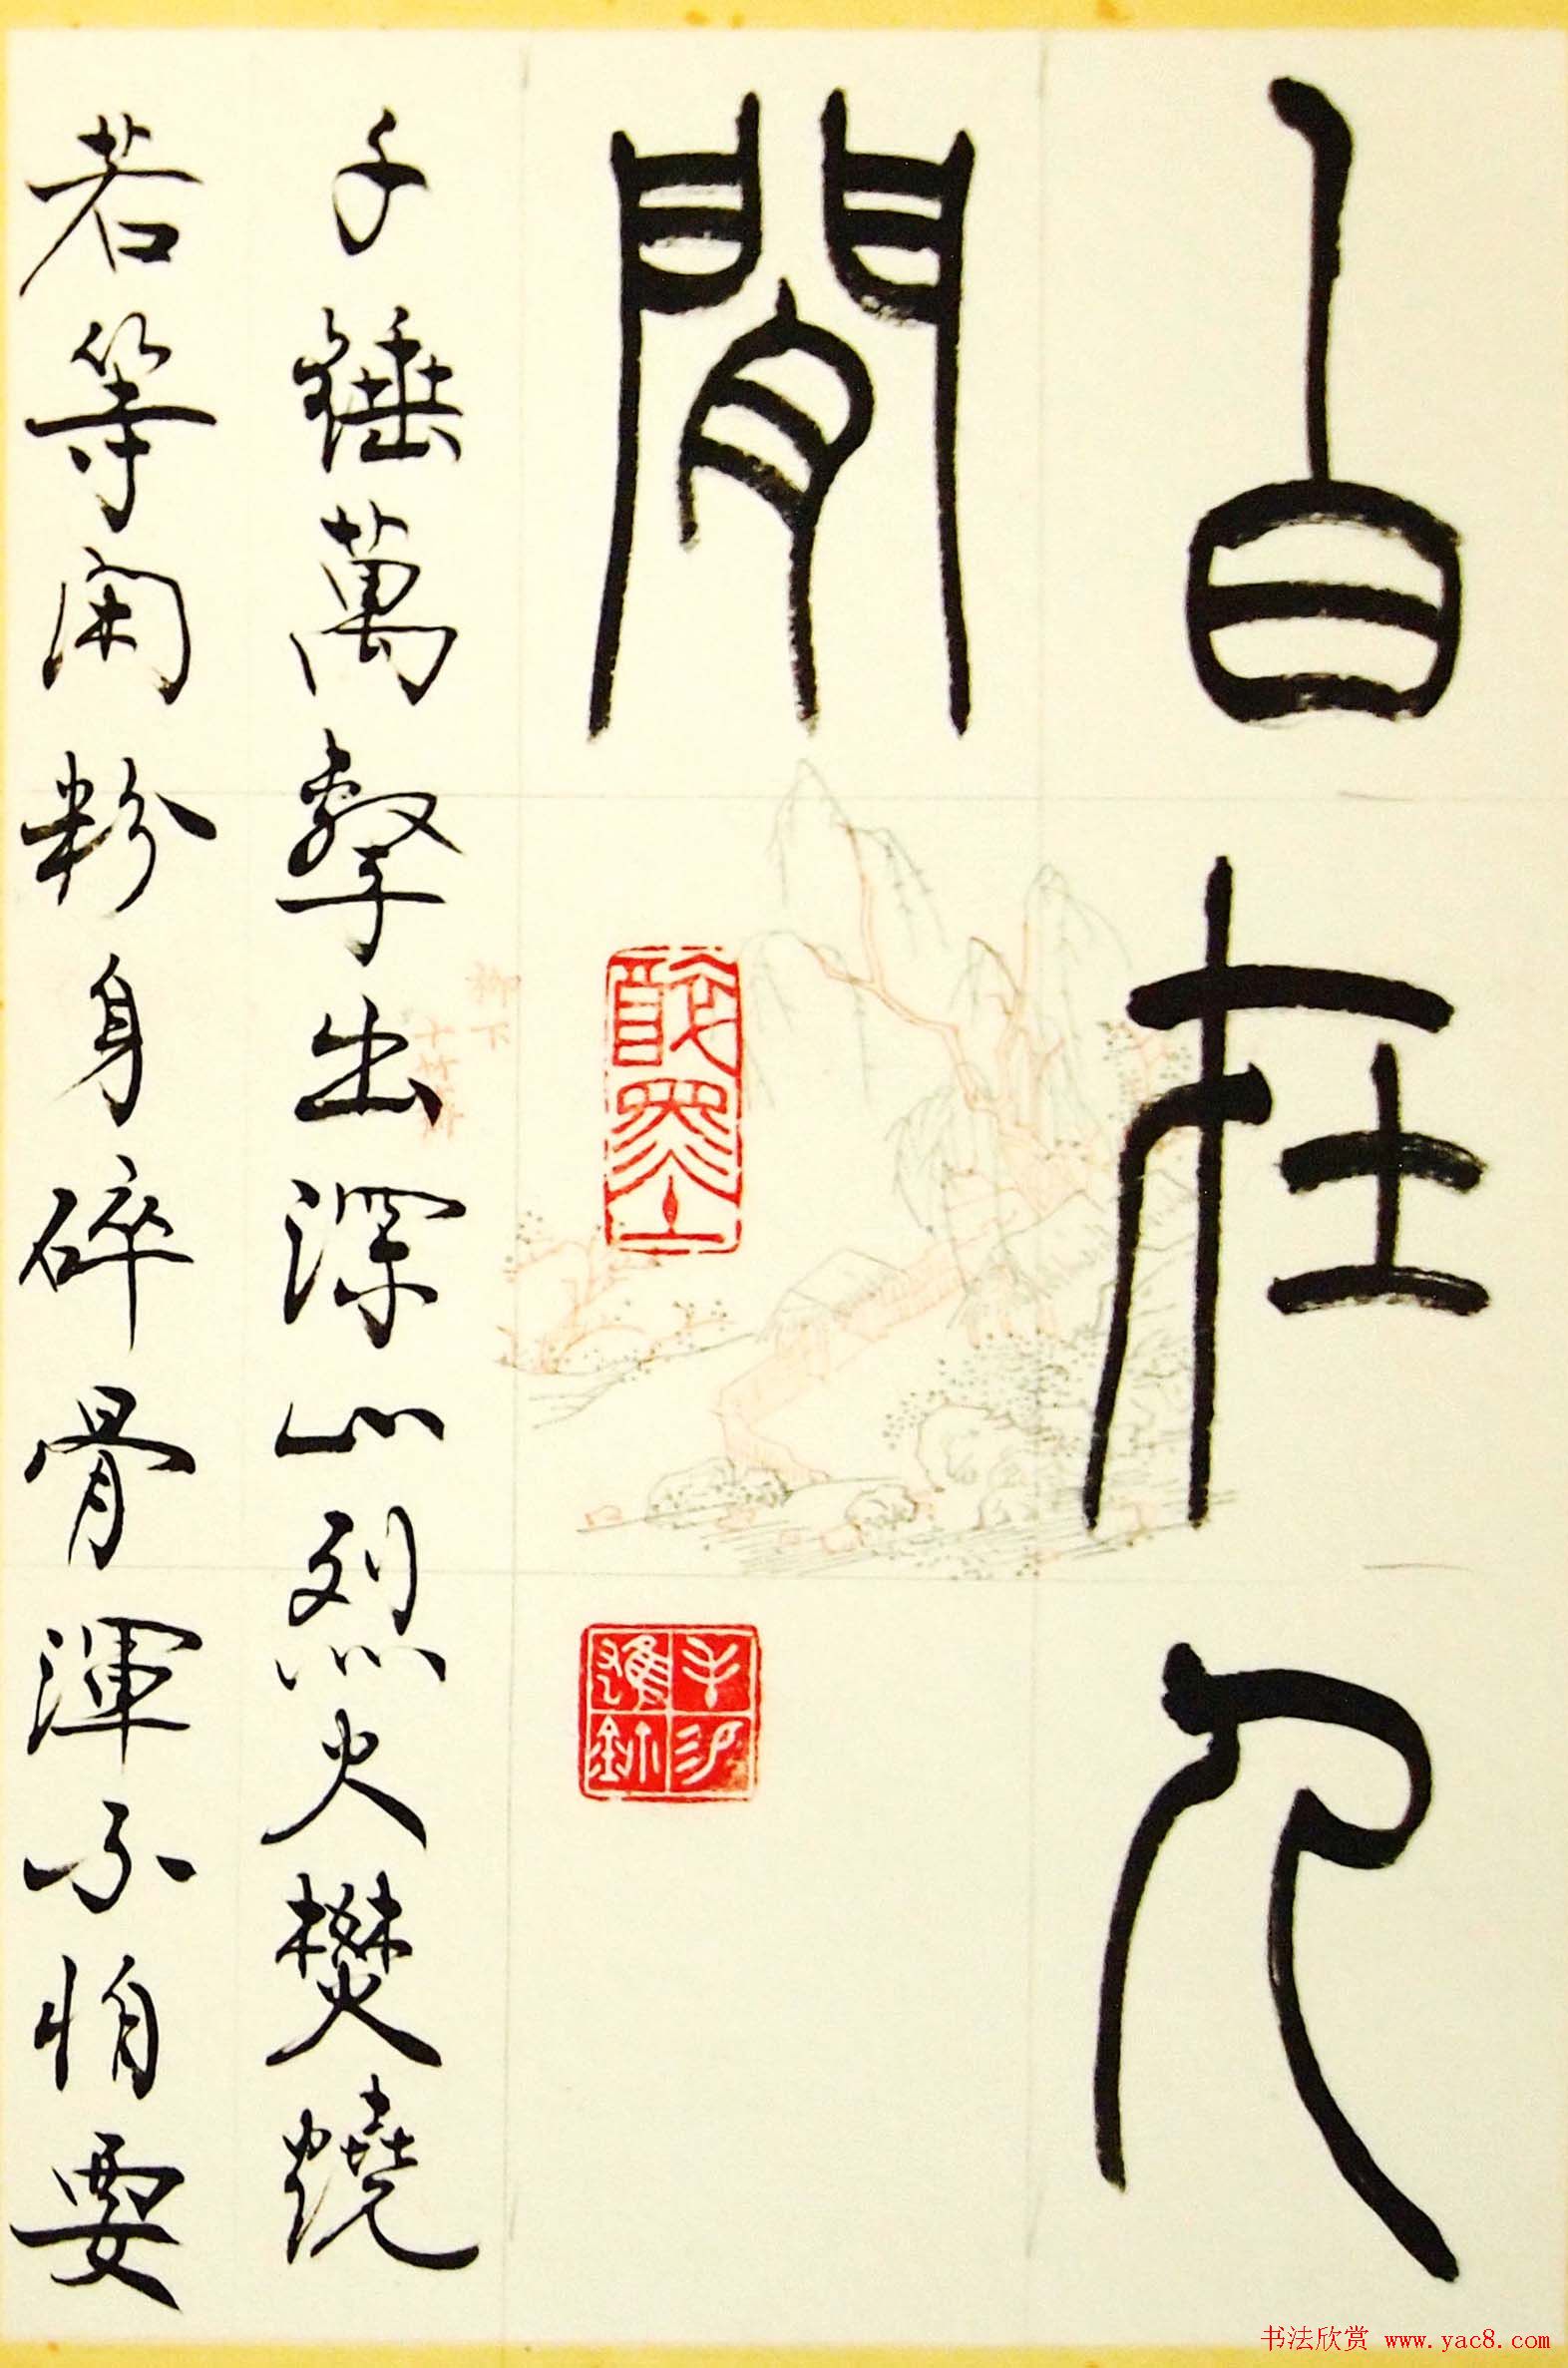 白在人
間
千錘萬擊出深山烈火焚燒
若等閑粉身碎骨渾不怕要
书法欣赏 www.yac8.com